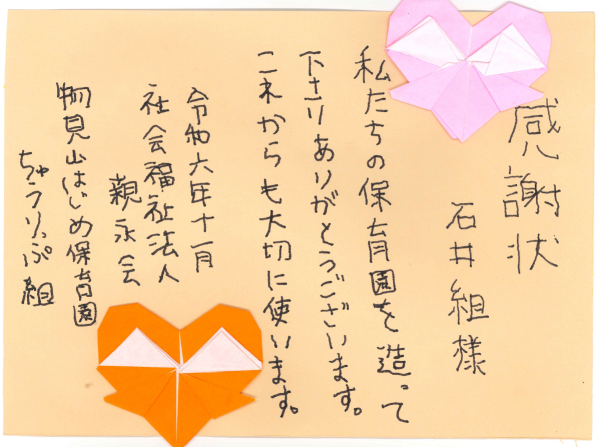 感謝状
石井組様
私たちの保育園を造って
下さりありがとうございます。
これからも大切に使います。
令和六年十一月
社会福祉法人
親永会
物見山はじめ保育園
ちゅうりっぷ組